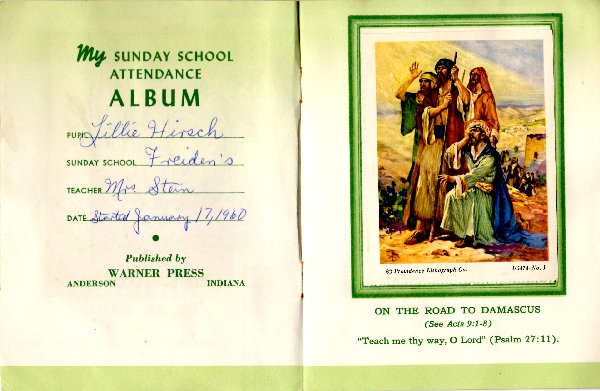 My SUNDAY SCHOOL
ATTENDANCE
ALBUM
PUPIL Lillie Hirsch
SUNDAY SCHOOL Freiden's
TEACHER Mrs Stein
DATE Started January 17, 1960
Published by
WARNER PRESS
ANDERSON INDIANA
© Providence Lithograph Co. D3474—No. 1
ON THE ROAD TO DAMASCUS
(See Acts 9:1-8)
"Teach me thy way, O Lord" (Psalm 27:11).